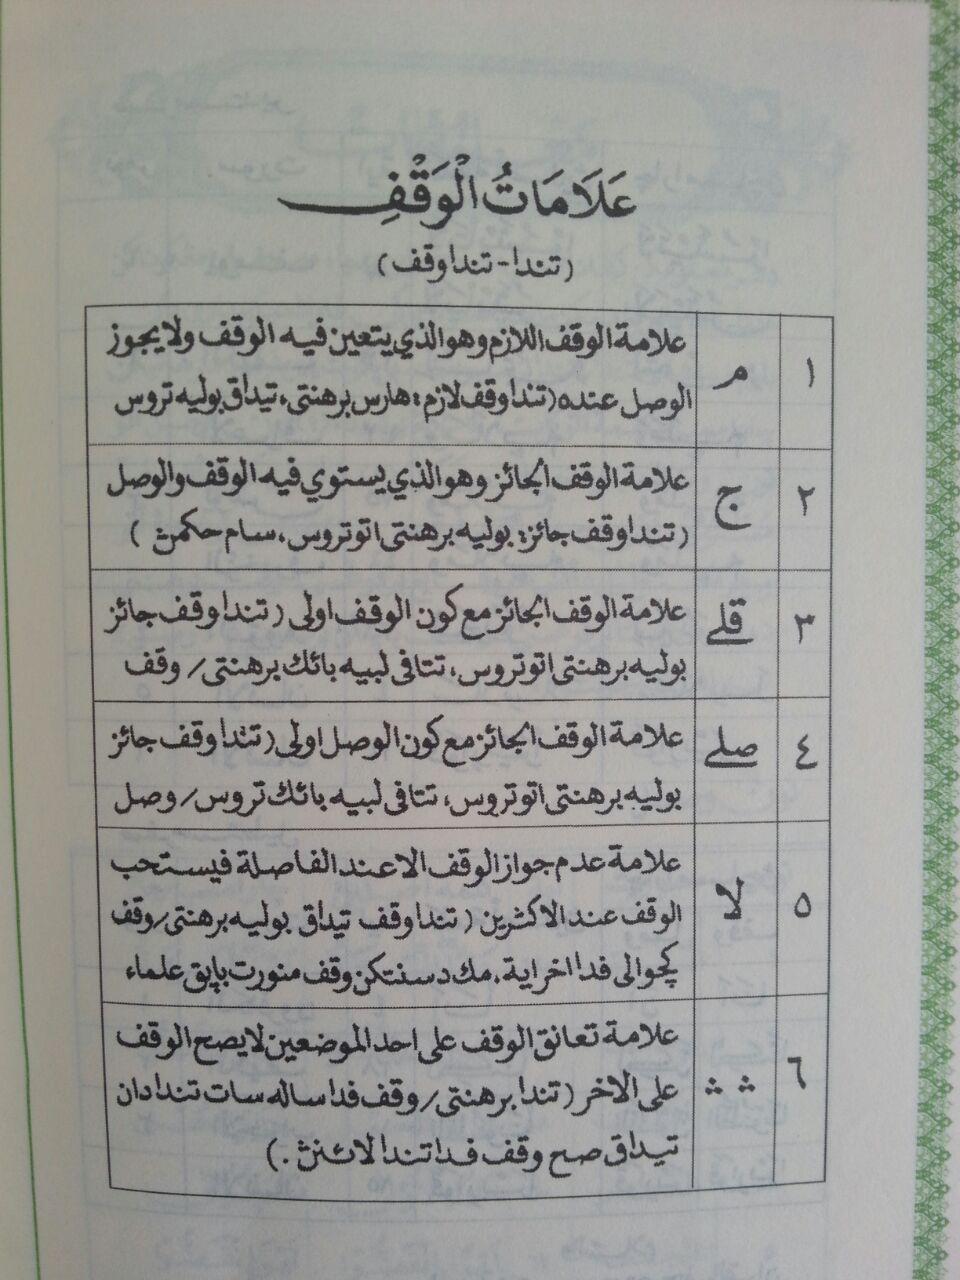 عَلَامَاتُ الْوَقْفِ
(تندا - تندا وقف)
١ م علامة الوقف اللازم وهو الذي يتعين فيه الوقف ولا يجوز
الوصل عنده (تندا وقف لازم: هارس برهنتي، تيداق بوليه تروس
٢ ج علامة الوقف الجائز وهو الذي يستوي فيه الوقف والوصل
(تندا وقف جائز: بوليه برهنتي اتو تروس، سام حكمڽ)
٣ قلے علامة الوقف الجائز مع كون الوقف اولى (تندا وقف جائز
بوليه برهنتي اتو تروس، تتافي لبيه بائك برهنتي / وقف
٤ صلے علامة الوقف الجائز مع كون الوصل اولى (تندا وقف جائز
بوليه برهنتي اتو تروس، تتافي لبيه بائك تروس / وصل
٥ لا علامة عدم جواز الوقف الا عند الفاصلة فيستحب
الوقف عند الاكثرين (تندا وقف تيداق بوليه برهنتي / وقف
كچوالي فدا اخر اية. مك دسنتكن وقف منورت باپق علماء
٦ ۛ ۛ علامة تعانق الوقف على احد الموضعين لا يصح الوقف
على الاخر (تندا برهنتي / وقف فدا ساله سات تندا دان
تيداق صح وقف فدا تندا لائنڽ.)